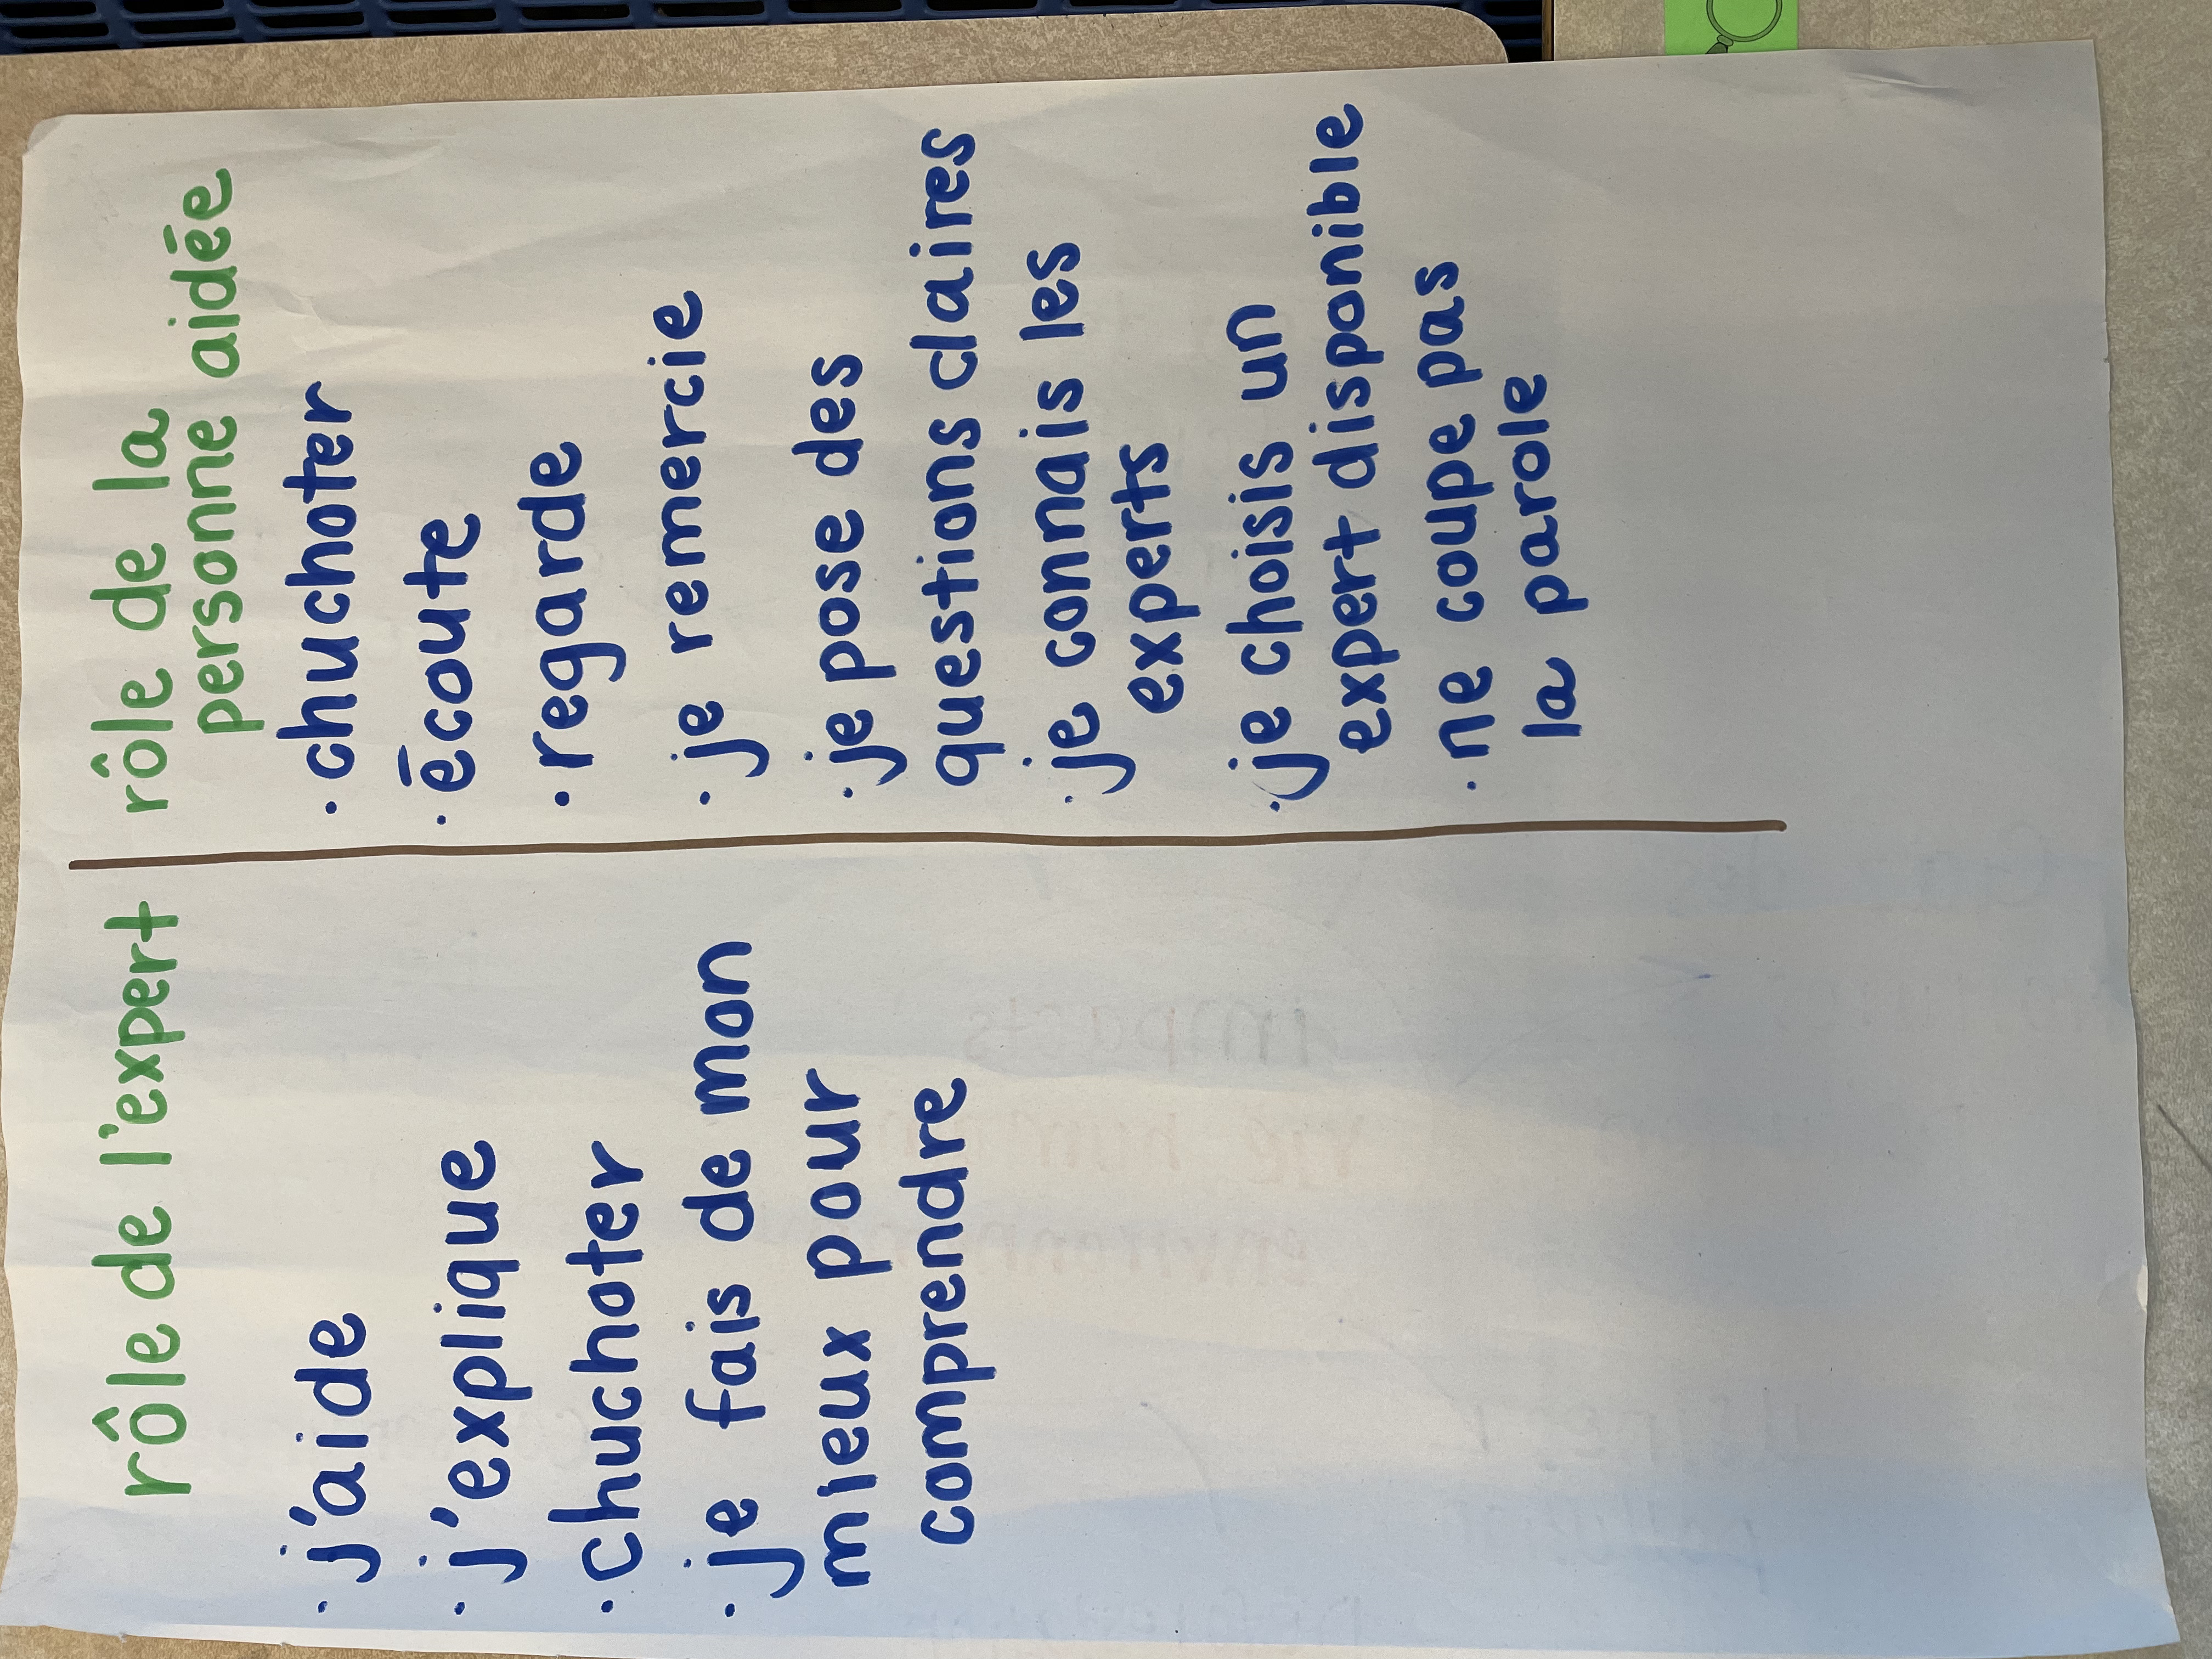 rôle de l'expert
· j'aide
· j'explique
· chuchoter
· je fais de mon
mieux pour
comprendre
rôle de la
personne aidée
· chuchoter
· écoute
· regarde
· je remercie
· je pose des
questions claires
· je connais les
experts
· je choisis un
expert disponible
· ne coupe pas
la parole